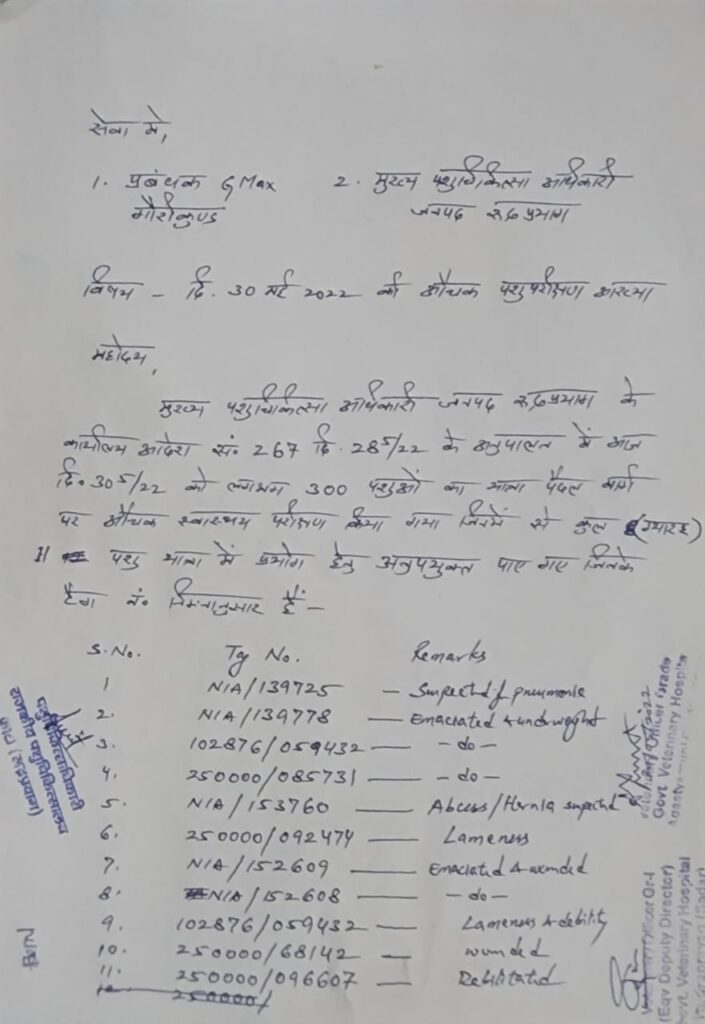 सेवा में,
1. प्रबंधक GMax 2. मुख्य पशुचिकित्सा अधिकारी
गौरीकुण्ड जनपद रूद्रप्रयाग
विषय - दि. 30 मई 2022 की औचक पशुपरीक्षण आख्या
महोदय,
मुख्य पशुचिकित्सा अधिकारी जनपद रूद्रप्रयाग के
कार्यालय आदेश सं. 267 दि. 28 5/22 के अनुपालन में आज
दि. 30 5/22 को लगभग 300 पशुओं का यात्रा पैदल मार्ग
पर औचक स्वास्थय परीक्षण किया गया जिनमें से कुल (ग्यारह)
11 पशु यात्रा में प्रयोग हेतु अनुपयुक्त पाए गए जिनके
टैग नं. निम्नानुसार हैं -
S.No. Tg No. Remarks
1 NIA/139725 - Suspected of pneumonia
2. NIA/139778 - Emaciated & underweight
3. 102876/059432 - do -
4. 250000/085731 - do -
5. NIA/153760 - Abcess/Hernia suspected
6. 250000/092474 - Lameness
7. NIA/152609 - Emaciated & wounded
8. NIA/152608 - do -
9. 102876/059432 - Lameness & debility
10. 250000/68142 - wounded
11. 250000/096607 - Debilitated
250000/
पशुचिकित्साधिकारी
राजकीय पशुचिकित्सालय
(रूद्रप्रयाग)
Officer Grade
Govt. Veterinary Hospital
Officer Gr-I
(Eqv Deputy Director)
Govt. Veterinary Hospital